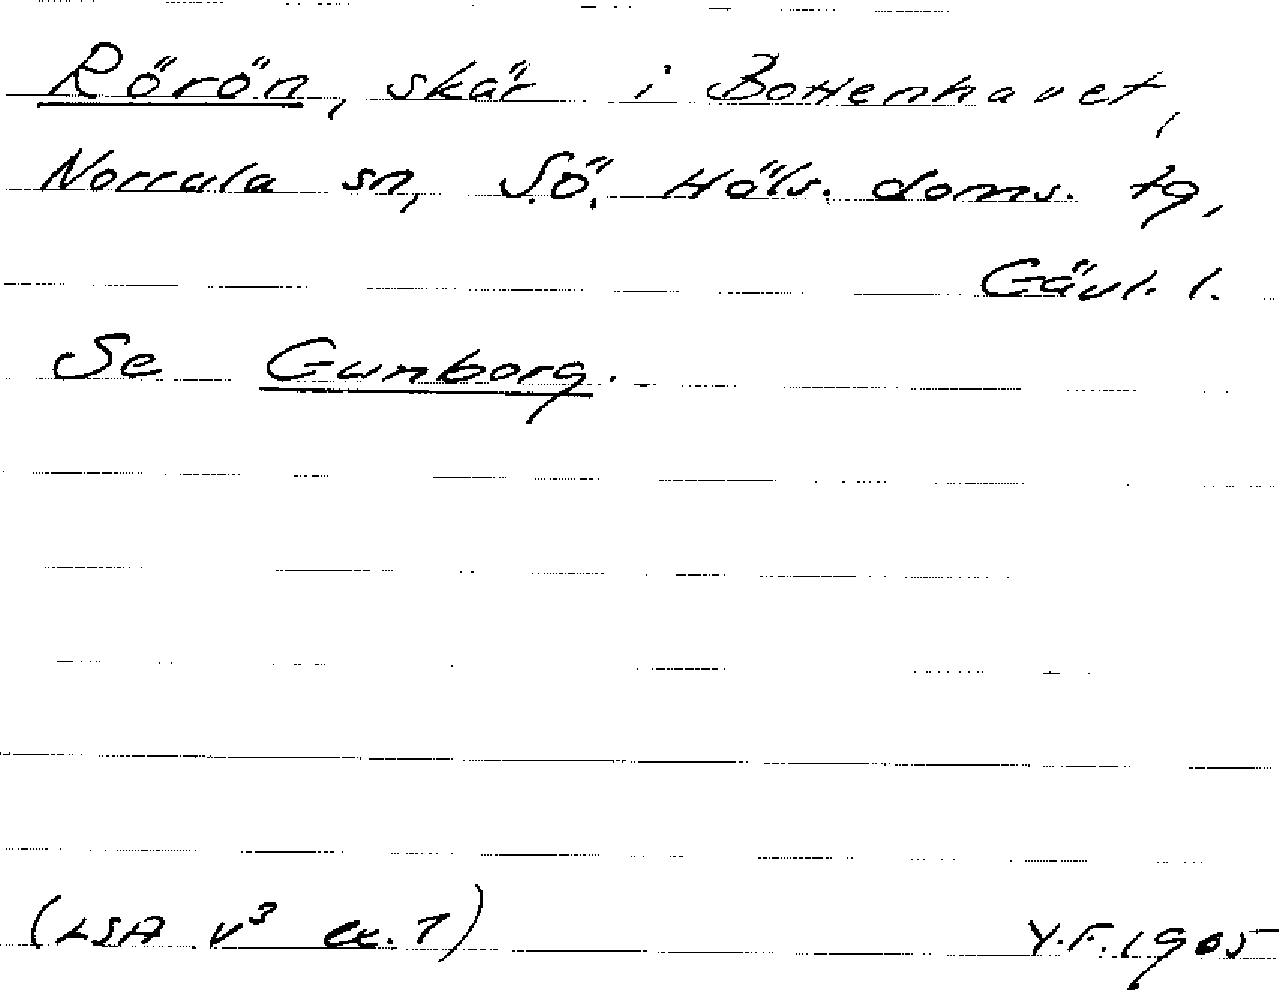 Rörön, skär i Bottenhavet,
Norrala sn, S.Ö. Häls. doms. tg,
Gävl. l.
Se Gumborg.
(LSA v³ ex. 1) Y.F. 1905